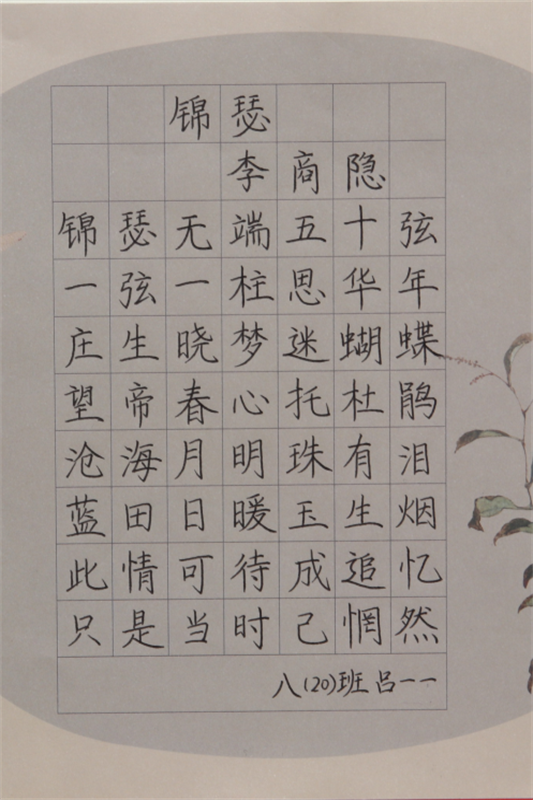 锦瑟
李商隐
锦瑟无端五十弦
一弦一柱思华年
庄生晓梦迷蝴蝶
望帝春心托杜鹃
沧海月明珠有泪
蓝田日暖玉生烟
此情可待成追忆
只是当时己惘然
八(20)班吕一一